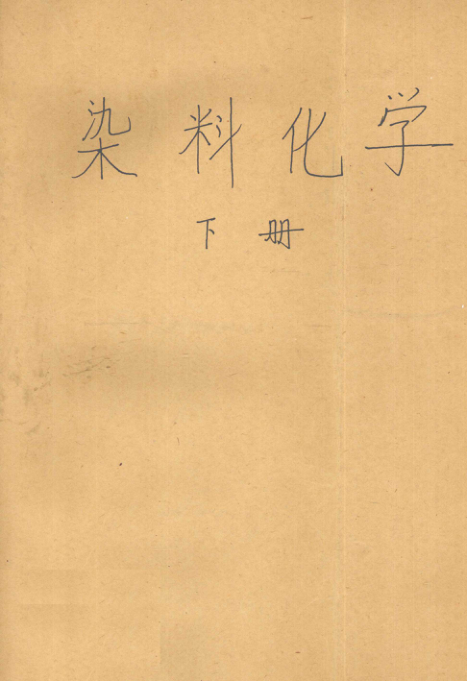 染料化学
下册